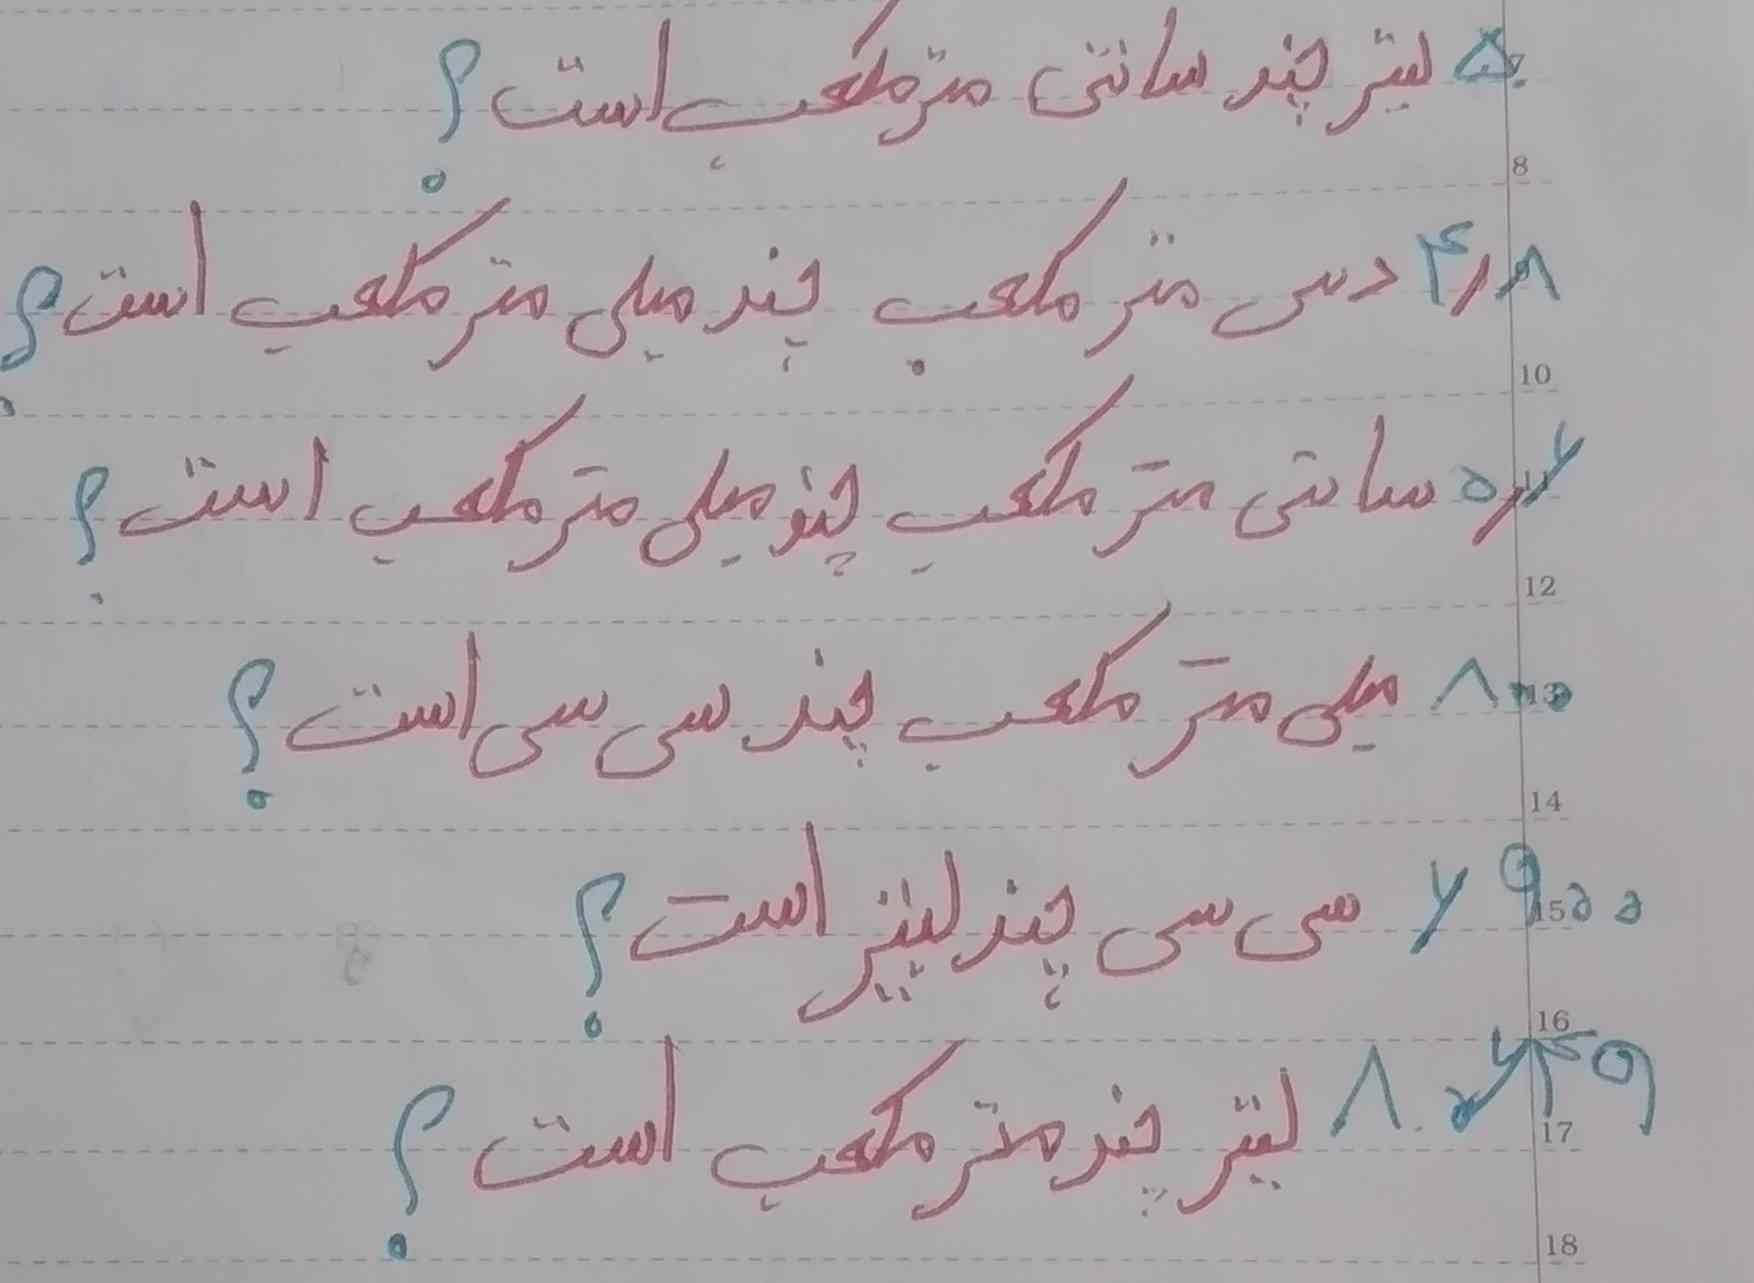 ۵ لیتر چند سانتی متر مکعب است؟
8
۴٫۸ دسی متر مکعب چند میلی متر مکعب است؟
10
سانتی متر مکعب چند میلی متر مکعب است؟
12
۸۰۰ میلی متر مکعب چند سی سی است؟
13
14
۷۹۰۰ سی سی چند لیتر است؟
15
16
لیتر چند متر مکعب است؟
17
18